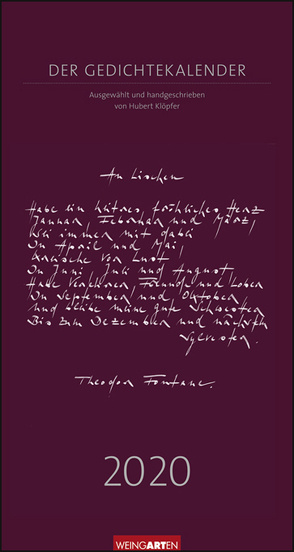 DER GEDICHTEKALENDER
Ausgewählt und handgeschrieben
von Hubert Klöpfer
An Lischen
Habe ein heitres, fröhliches Herz
Januar, Februar und März,
Sei immer mit dabei
In April und Mai,
Kreische vor Lust
In Juni, Juli und August,
Habe Verehrer, Freunde und Lober
In September und Oktober
Und bleibe meine gute Schwester
Bis zum Dezember und nächsten
Sylvester.
Theodor Fontane.
2020
WEINGARTEN